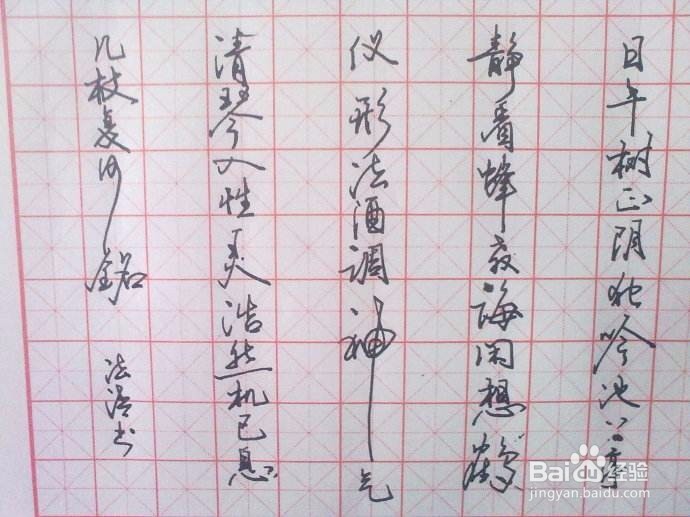 日午树正阴独吟池上亭
静看蜂教诲闲想鹤
仪形法酒调神气
清琴入性灵浩然机已息
几杖复何铭
法清书
Baidu 经验
jingyan.baidu.com